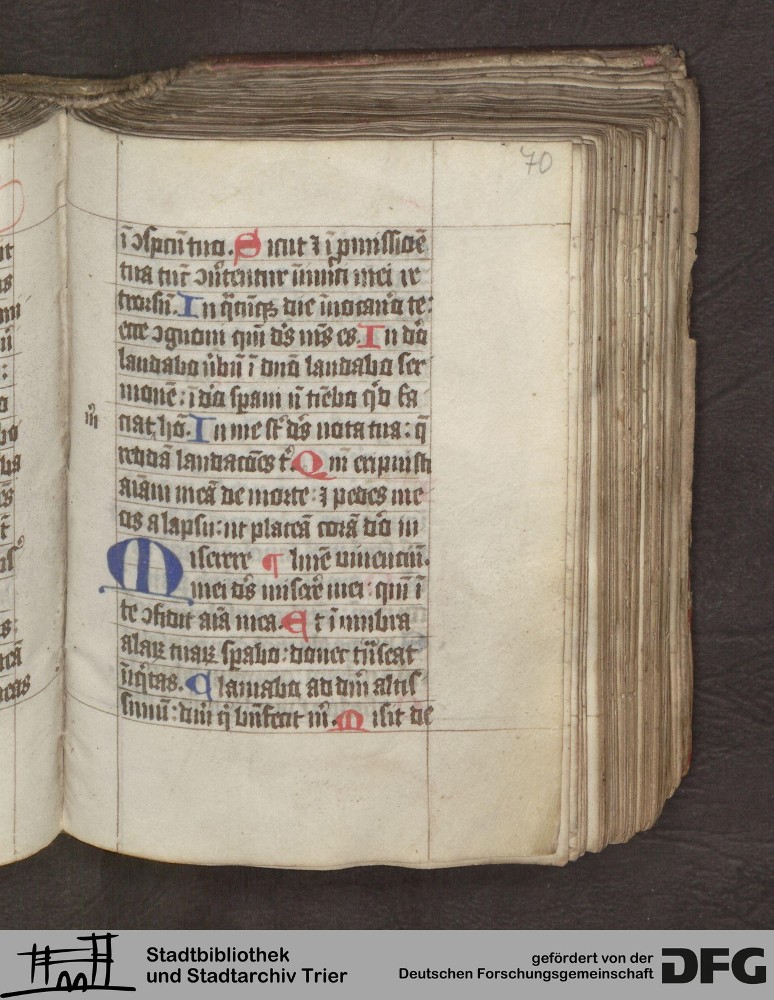 70
ī ɔspcū tuo. Sicut ⁊ ī pmissiōe
tua tūc ɔūtentur inimici mei re
trorsū. In q̄cūqꝫ die inuocau̾o te:
ecce ɔgnoui qm̄ ds̄ ms̄ es. In dō
laudabo ūbū ī dnō laudabo ser
monē: ī dō spaui nō tiēbo qd̾ fa
ciat hō. In me sūt ds̄ uota tua: q̄
reddā laudacōes t̾. Qm̄ eripuisti
aīam meā de morte: ⁊ pedes me
os a lapsu: ut placeā corā dō in
Miserere ¶ lumīe uiuenciū.
mei ds̄ miserē mei: qm̄ ī
te ɔfidit aīa mea. Et ī umbra
alaꝝ tuaꝝ spabo: donec tn̄seat
īiq̄tas. Clamabo ad dm̄ altis
simū: dm̄ q̄ bn̄fecit m̄. Misit de
m̄
Stadtbibliothek
und Stadtarchiv Trier
gefördert von der
Deutschen Forschungsgemeinschaft
DFG